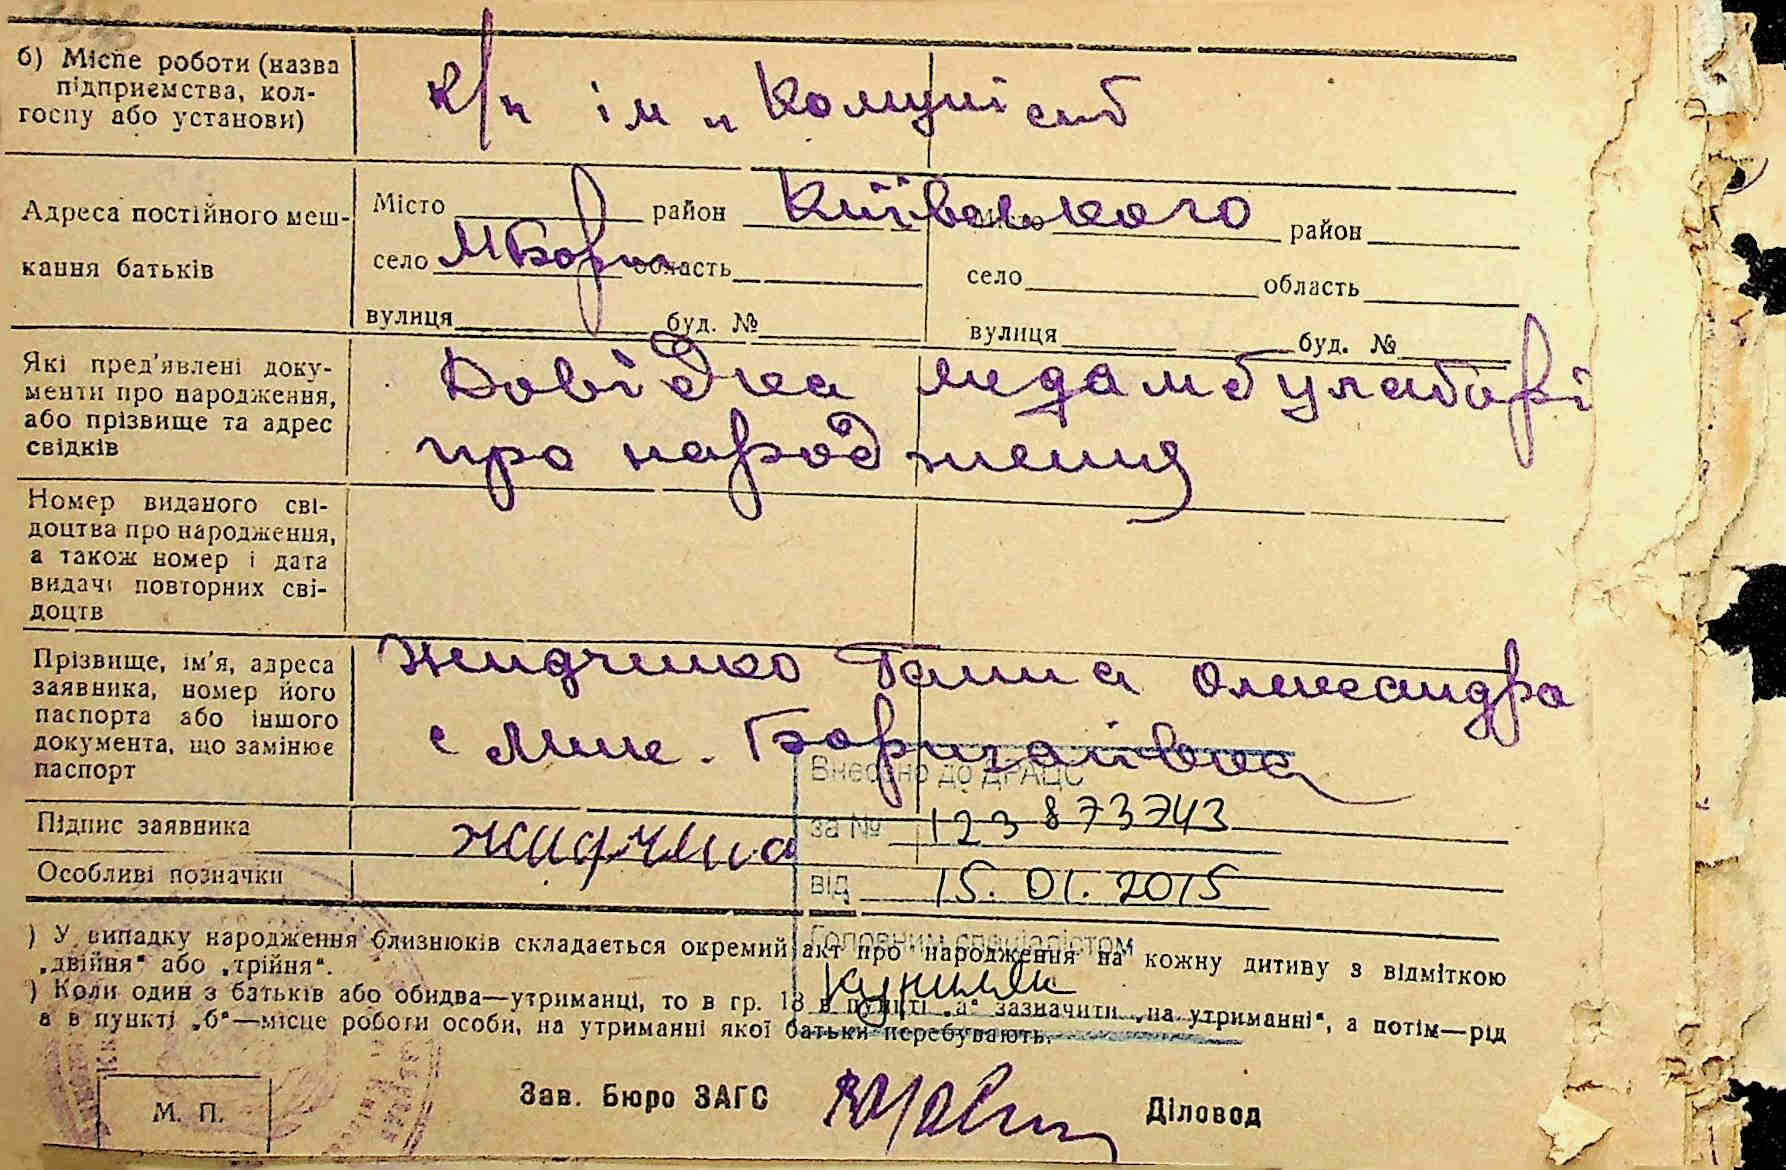 б) Місце роботи (назва
підприємства, кол-
госпу або установи)
к/г ім „ Комуніст
Адреса постійного меш-
кання батьків
Місто район Київського район
село МБори область село область
вулиця буд. № вулиця буд. №
Які пред'явлені доку-
менти про народження,
або прізвище та адрес
свідків
Довідка медамбулаторі
про народження
Номер виданого сві-
доцтва про народження,
а також номер і дата
видачі повторних сві-
доцтв
Прізвище, ім'я, адреса
заявника, номер його
паспорта або іншого
документа, що замінює
паспорт
Жидченко Ганна Олександра
с Мик. Боригайівка
Внесено до ДРАЦС
Підпис заявника
за № 123 873743
Особливі позначки
від 15. 01. 2015
Головним спеціалістом
) У випадку народження близнюків складається окремий акт про народження на кожну дитину з відміткою
„двійня“ або „трійня“.
) Коли один з батьків або обидва—утриманці, то в гр. 13 в пункті „а“ зазначити „на утриманні“, а потім—рід
а в пункті „б“—місце роботи особи, на утриманні якої батьки перебувають.
М. П.
Зав. Бюро ЗАГС Діловод